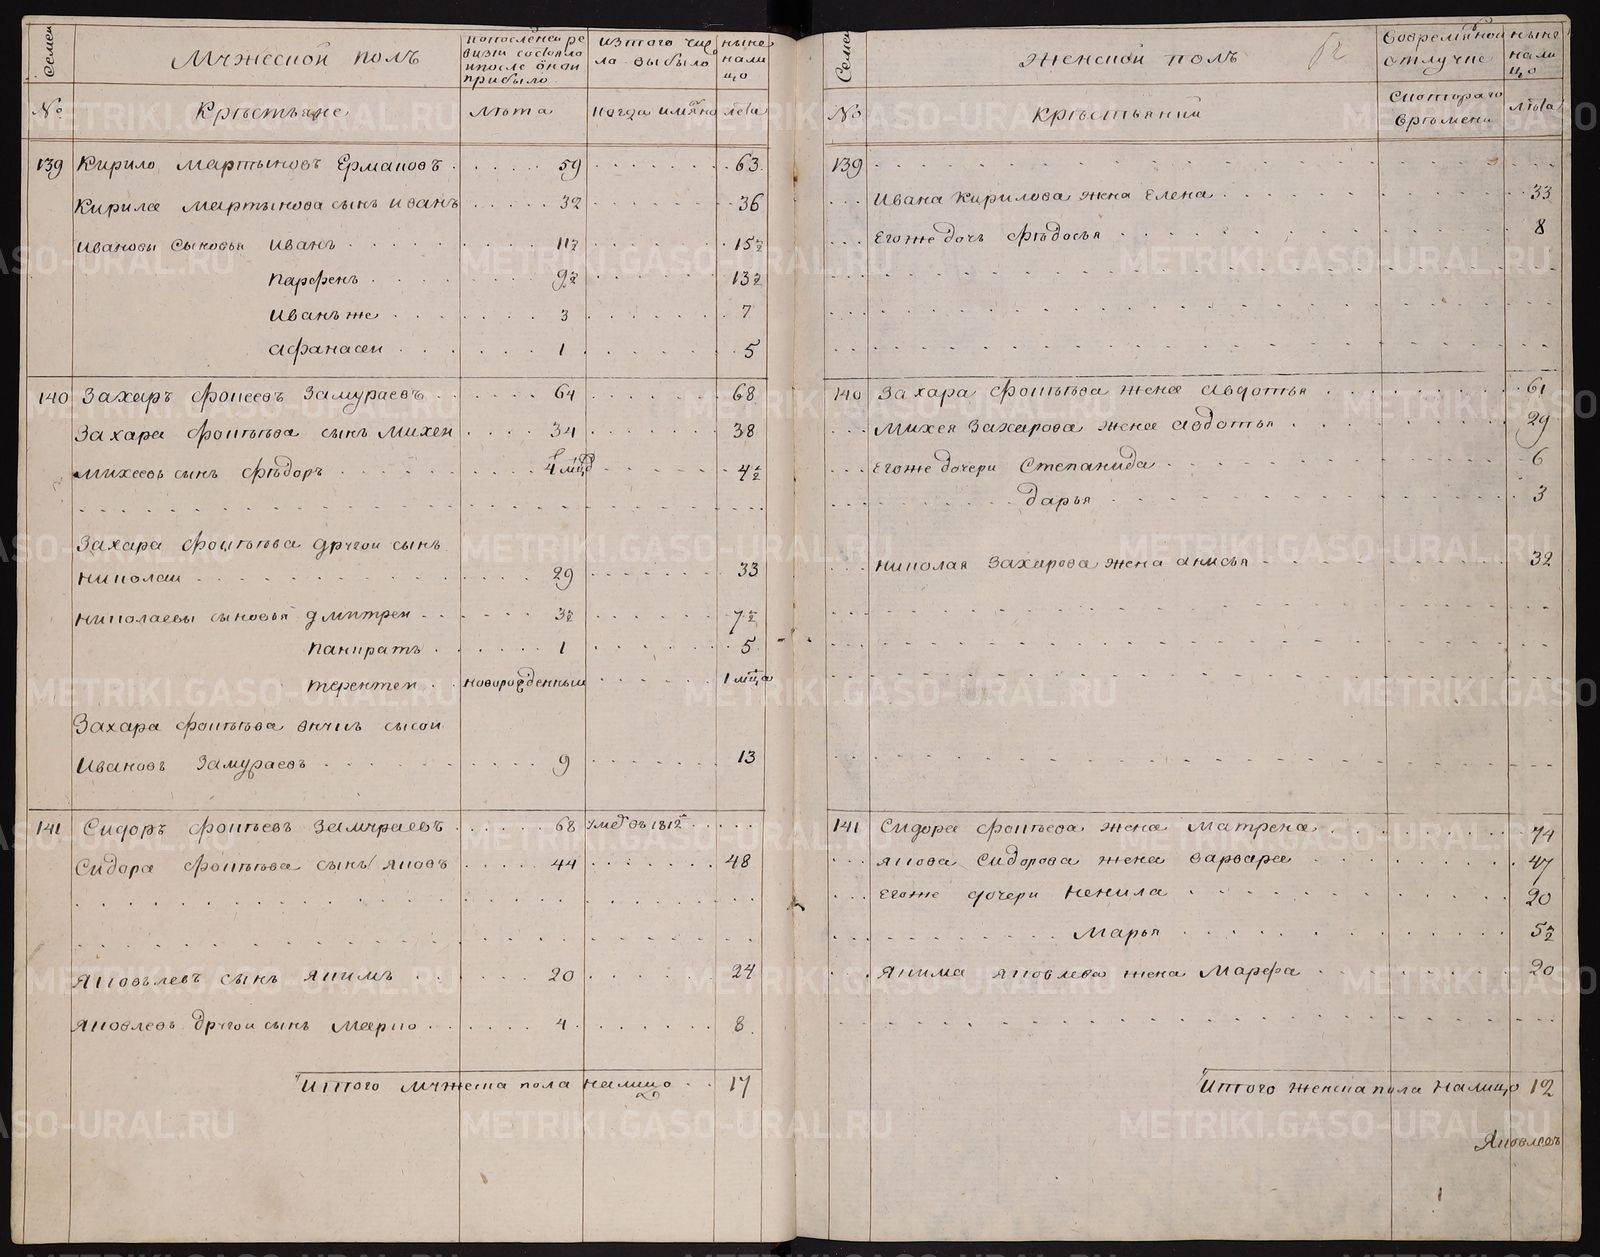 Семеи
Мужеской полъ
По последнеи ре
визіи состояло
и после онои
прибыло
Изъ того чис
ла выбыло
Ныне
нали
цо
№
Крѣстьяне
Лѣта
Когда имянно
лета
139 Кирило Мартыновъ Ермаковъ 59 63
Кирила Мартынова сынъ Иванъ 32 36
Ивановы сыновья Иванъ 11 1/2 15 1/2
Парфенъ 9 1/2 13 1/2
Иванъ же 3 7
Афанасеи 1 5
140 Захаръ Фокеевъ Замураевъ 64 68
Захара Фокѣѣва сынъ Михеи 34 38
Михеевъ сынъ Фѣдоръ 4 мцд 4 1/2
Захара Фокѣѣва другои сынъ
Николаи 29 33
Николаевы сыновья Дмитреи 3 1/2 7 1/2
Панкратъ 1 5
Терентеи новорожденныи 1 мца
Захара Фокѣѣва внукъ сысои
Ивановъ Замураевъ 9 13
141 Сидоръ Фокѣевъ Замураевъ 68 умеръ въ 1812
Сидора Фокѣѣва сынъ Яковъ 44 48
Яковълевъ сынъ Якимъ 20 24
Яковлевъ другои сынъ Марко 4 8
Итого мужеска пола налицо 17
Семеи
Женскои полъ
Во времѣннои
отлучке
Ныне
нали
цо
№
Крѣстьянки
С котораго
врѣмени
лѣта
139
Ивана Кирилова жена Елена 33
Его же дочь Фѣдосья 8
140 Захара Фокѣѣва жена Авдотья 61
Михея Захарова жена Авдотья 29
Его же дочери Степанида 6
Дарья 3
Николая Захарова жена Анисья 32
141 Сидора Фокѣева жена Матрена 74
Якова Сидорова жена Варвара 47
Его же дочери Ненила 20
Марья 5 1/2
Якима Яковлева жена Марфа 20
Итого женска пола налицо 12
Яковлевъ
METRIKI.GASO-URAL.RU